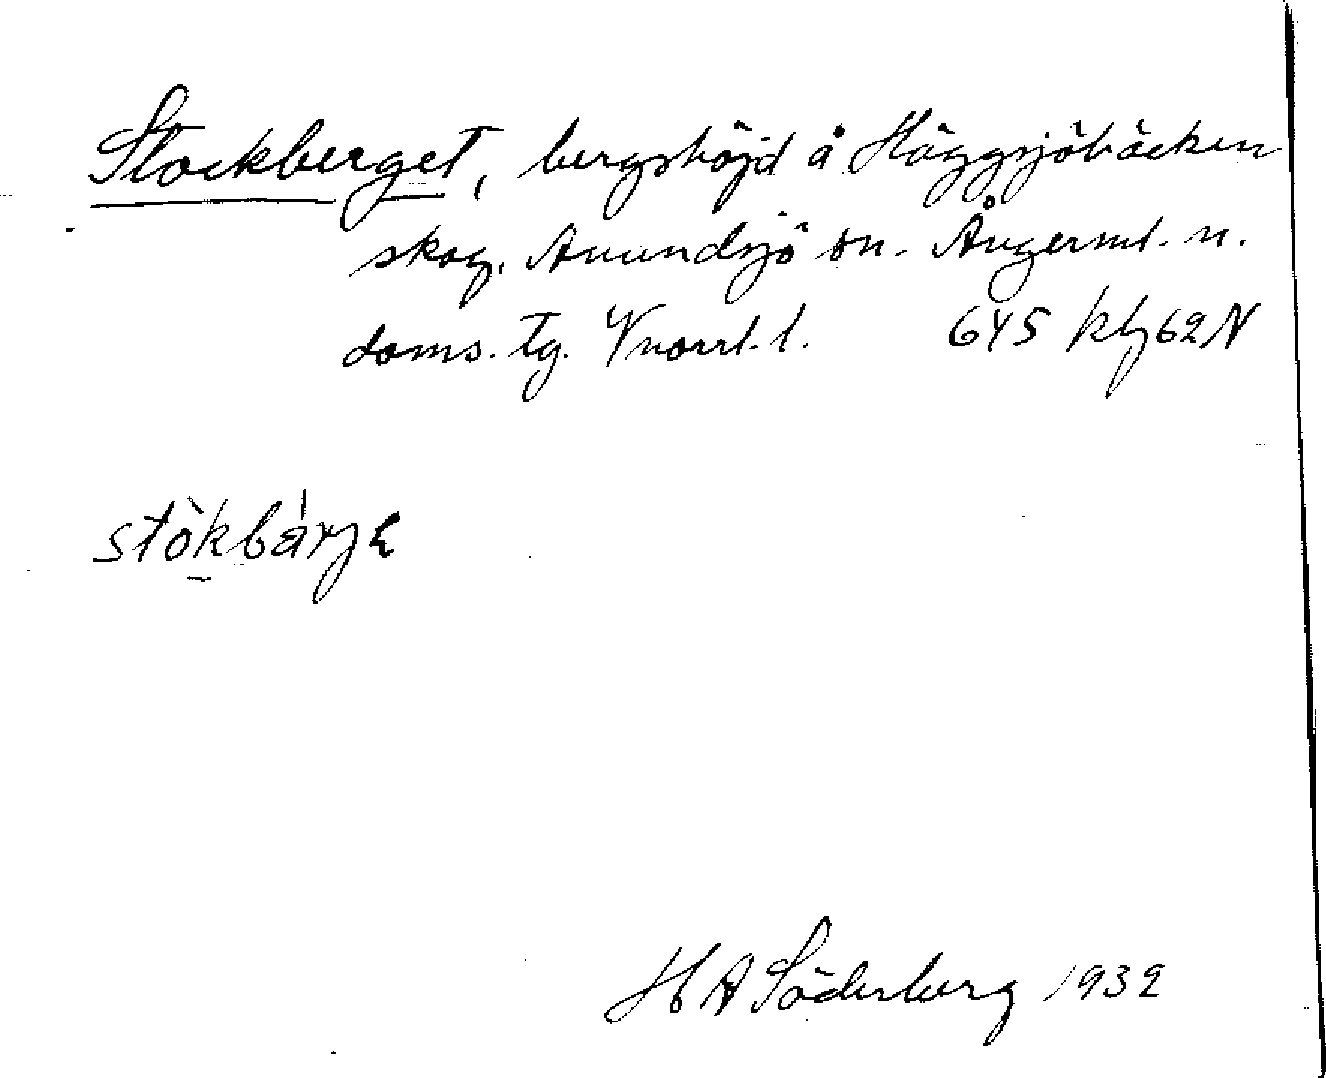 Stockberget, bergshöjd å Häggsjöbäcken
skog, Anundsjö sn. Ångerml. n.
doms. tg. Vnorrl. l. 645 kbj 62 N
stòkbárjε
H A Söderberg 1932